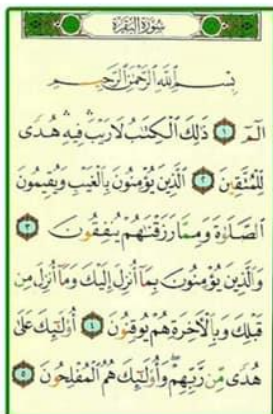 سُورَةُ الْبَقَرَةِ
بِسْمِ اللَّهِ الرَّحْمَٰنِ الرَّحِيمِ
الٓمٓ ١ ذَٰلِكَ الْكِتَابُ لَا رَيْبَ ۛ فِيهِ ۛ هُدًى
لِّلْمُتَّقِينَ ٢ الَّذِينَ يُؤْمِنُونَ بِالْغَيْبِ وَيُقِيمُونَ
الصَّلَوٰةَ وَمِمَّا رَزَقْنَٰهُمْ يُنفِقُونَ ٣
وَالَّذِينَ يُؤْمِنُونَ بِمَا أُنزِلَ إِلَيْكَ وَمَا أُنزِلَ مِن
قَبْلِكَ وَبِالْآخِرَةِ هُمْ يُوقِنُونَ ٤ أُولَٰئِكَ عَلَىٰ
هُدًى مِّن رَّبِّهِمْ ۖ وَأُولَٰئِكَ هُمُ الْمُفْلِحُونَ ٥